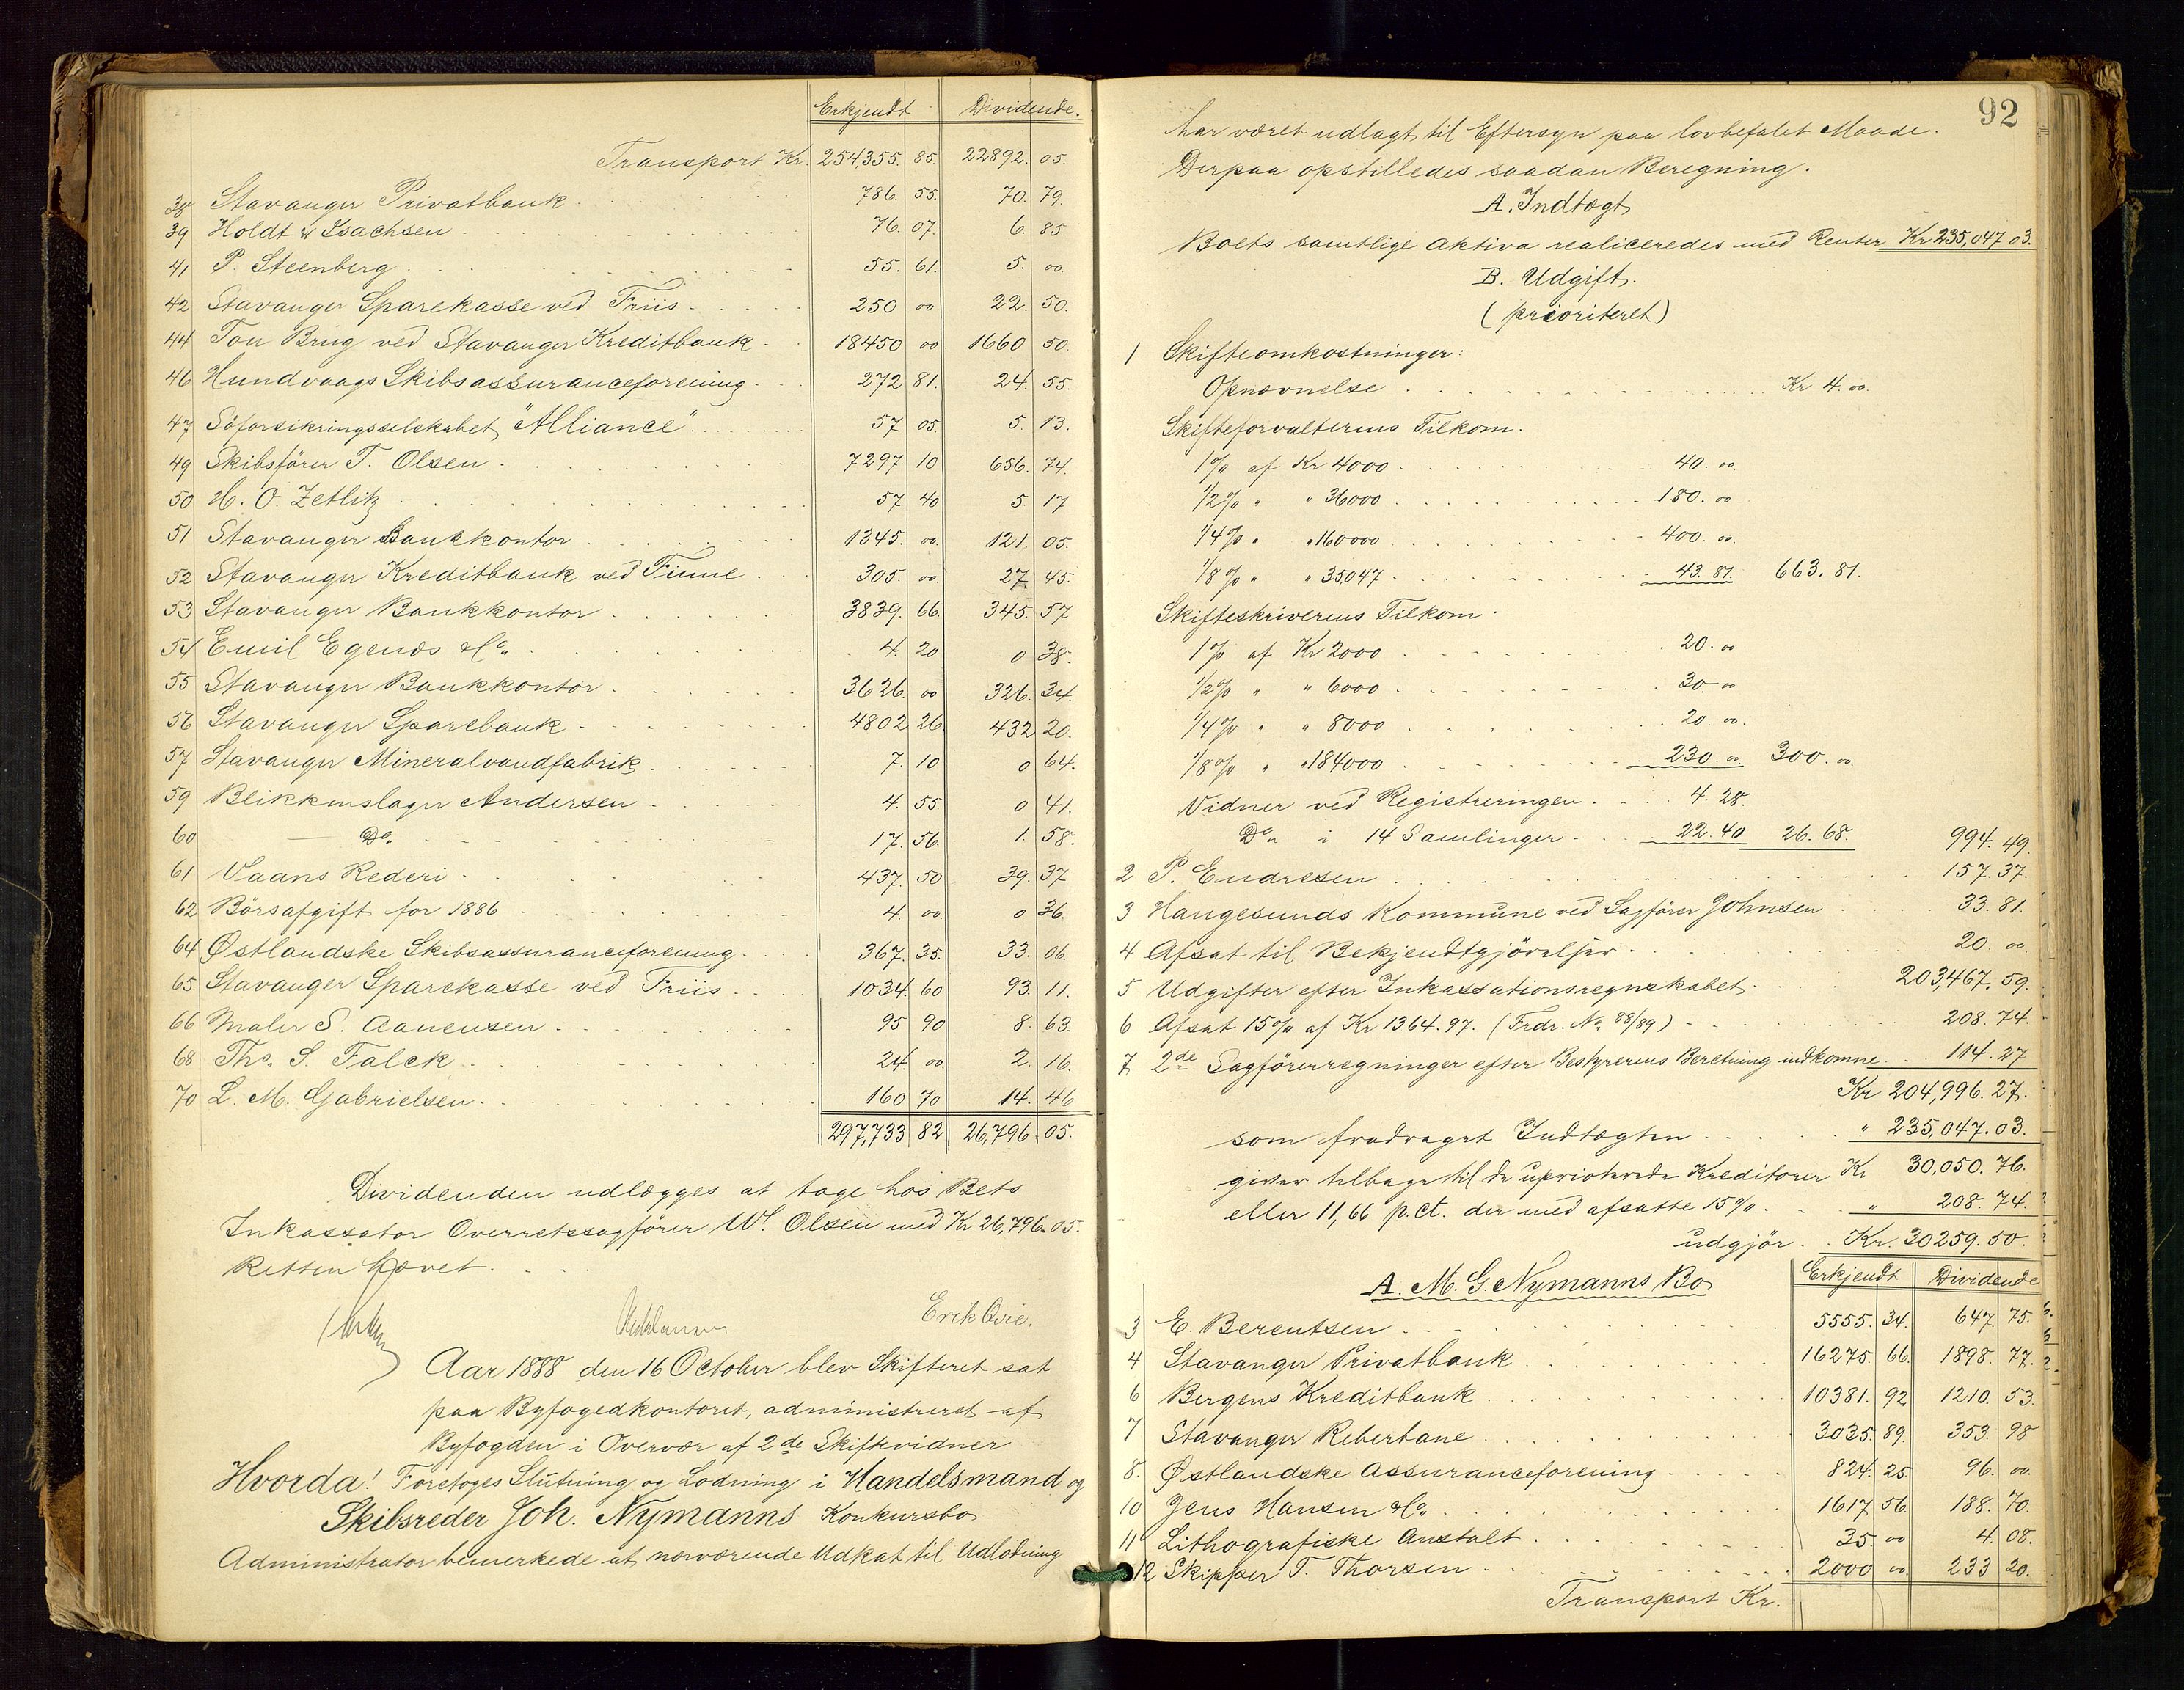 Erkjendt Dividende.
Transport Kr. 254,355. 85. 22892. 05.
38 Stavanger Privatbank 786. 55. 70. 79.
39 Holdt & Isachsen 76. 07. 6. 85.
41 P. Steenberg 55. 61. 5. 00
42 Stavanger Sparekasse ved Friis 250 00 22. 50.
44 Tou Brug ved Stavanger Kreditbank 18450 00 1660 50.
46 Hundvaags Skibsassuranceforening 272 81. 24. 55.
47 Söforsikringsselskabet "Alliance" 57 05. 5. 13.
49 Skibsförer T. Olsen 7297 10 656. 74.
50 H. O. Zetlitz 57 40 5. 17
51 Stavanger Bankkontor 1345. 00. 121. 05.
52 Stavanger Kreditbank ved Finne 305. 00. 27 45.
53 Stavanger Bankkontor 3839. 66. 345. 57
54 Emil Egenæs & Co. 4. 20 0 38.
55 Stavanger Bankkontor 3626. 00 326. 34.
56 Stavanger Sparebank 4802 26. 432 20.
57 Stavanger Mineralvandfabrik 7. 10 0 64.
59 Blikkenslager Andersen 4. 55. 0 41.
60 — Do. 17. 56. 1. 58.
61 Vaans Rederi 437. 50 39. 37
62 Börsafgift for 1886 4. 00. 0 36.
64 Østlandske Skibsassuranceforening 367. 35. 33. 06.
65 Stavanger Sparekasse ved Friis 1034. 60 93. 11.
66 Maler S. Aanensen 95 90 8. 63.
68 Ths. S. Falck 24 00. 2. 16.
70 L. M. Gabrielsen 160 70 14. 46
297,733 82 26,796. 05.
Dividenden udlægges at tage hos Bets
Inkassator Overretssagförer W. Olsen med Kr 26,796.05.
Retten hævet.
Erik Qvie.
Aar 1888 den 16 October blev Skifteret sat
paa Byfogedkontoret, administreret af
Byfogden i Overvær af 2de Skiftevidner
Hvorda! Foretoges Slutning og Lodning i Handelsmand og
Skibsreder Joh. Nymanns Konkursbo
Administrator bemerkede at nærværende Udkast til Udlodning
92
har været udlagt til Eftersyn paa lovbefalet Maade.
Derpaa opstilledes saadan Beregning.
A. Indtægt
Boets samtlige Aktiva realiceredes med Renter Kr 235,047 03.
B. Udgift.
(prioriteret)
1 Skifteomkostninger:
Opnævnelse Kr 4. 00.
Skifteforvalterens Tilkom.
1% af Kr 4000 40. 00.
1/2% " " 36000 180. 00
1/4% " " 160000 400. 00.
1/8% " " 35,047 43. 81. 663. 81.
Skifteskriverens Tilkom.
1% af Kr 2000 20. 00
1/2% " " 6000 30. 00
1/4% " " 8000 20. 00.
1/8% " " 184000 230. 00. 300. 00.
Vidner ved Registreringen 4. 28.
Do. i 14 Samlinger 22. 40 26. 68. 994. 49.
2 P. Endresen 157. 37.
3 Haugesunds Kommune ved Sagförer Johnsen 33. 81.
4 Afsat til Bekjendtgjörelser 20. 00
5 Udgifter efter Inkassationsregnskabet 203,467. 59.
6 Afsat 15% af Kr 1364. 97. (Frdr. No. 88/89) 208. 74.
7 2de Sagförerregninger efter Bestyrerens Beretning indkomne 114. 27
Kr 204,996. 27.
som fradraget Indtægten " 235,047. 03.
giver tilbage til de uprioriterede Kreditorer Kr 30,050. 76.
eller 11,66 p.ct. der med afsatte 15% " 208. 74.
udgjör Kr. 30259. 50.
A. M. G. Nymanns Bo Erkjendt Dividende
3 E. Berentsen 5555. 34. 647. 75.
4 Stavanger Privatbank 16275. 66. 1898. 77.
6 Bergens Kreditbank 10381. 92 1210. 53.
7 Stavanger Reberbane 3035. 89. 353. 98
8. Østlandske Assuranceforening 824. 25. 96. 00.
10 Jens Hansen & Co. 1617 56. 188. 70.
11 Lithografiske Anstalt 35. 00 4. 08.
12 Skipper T. Thorsen 2000 00. 233 20.
Transport Kr.